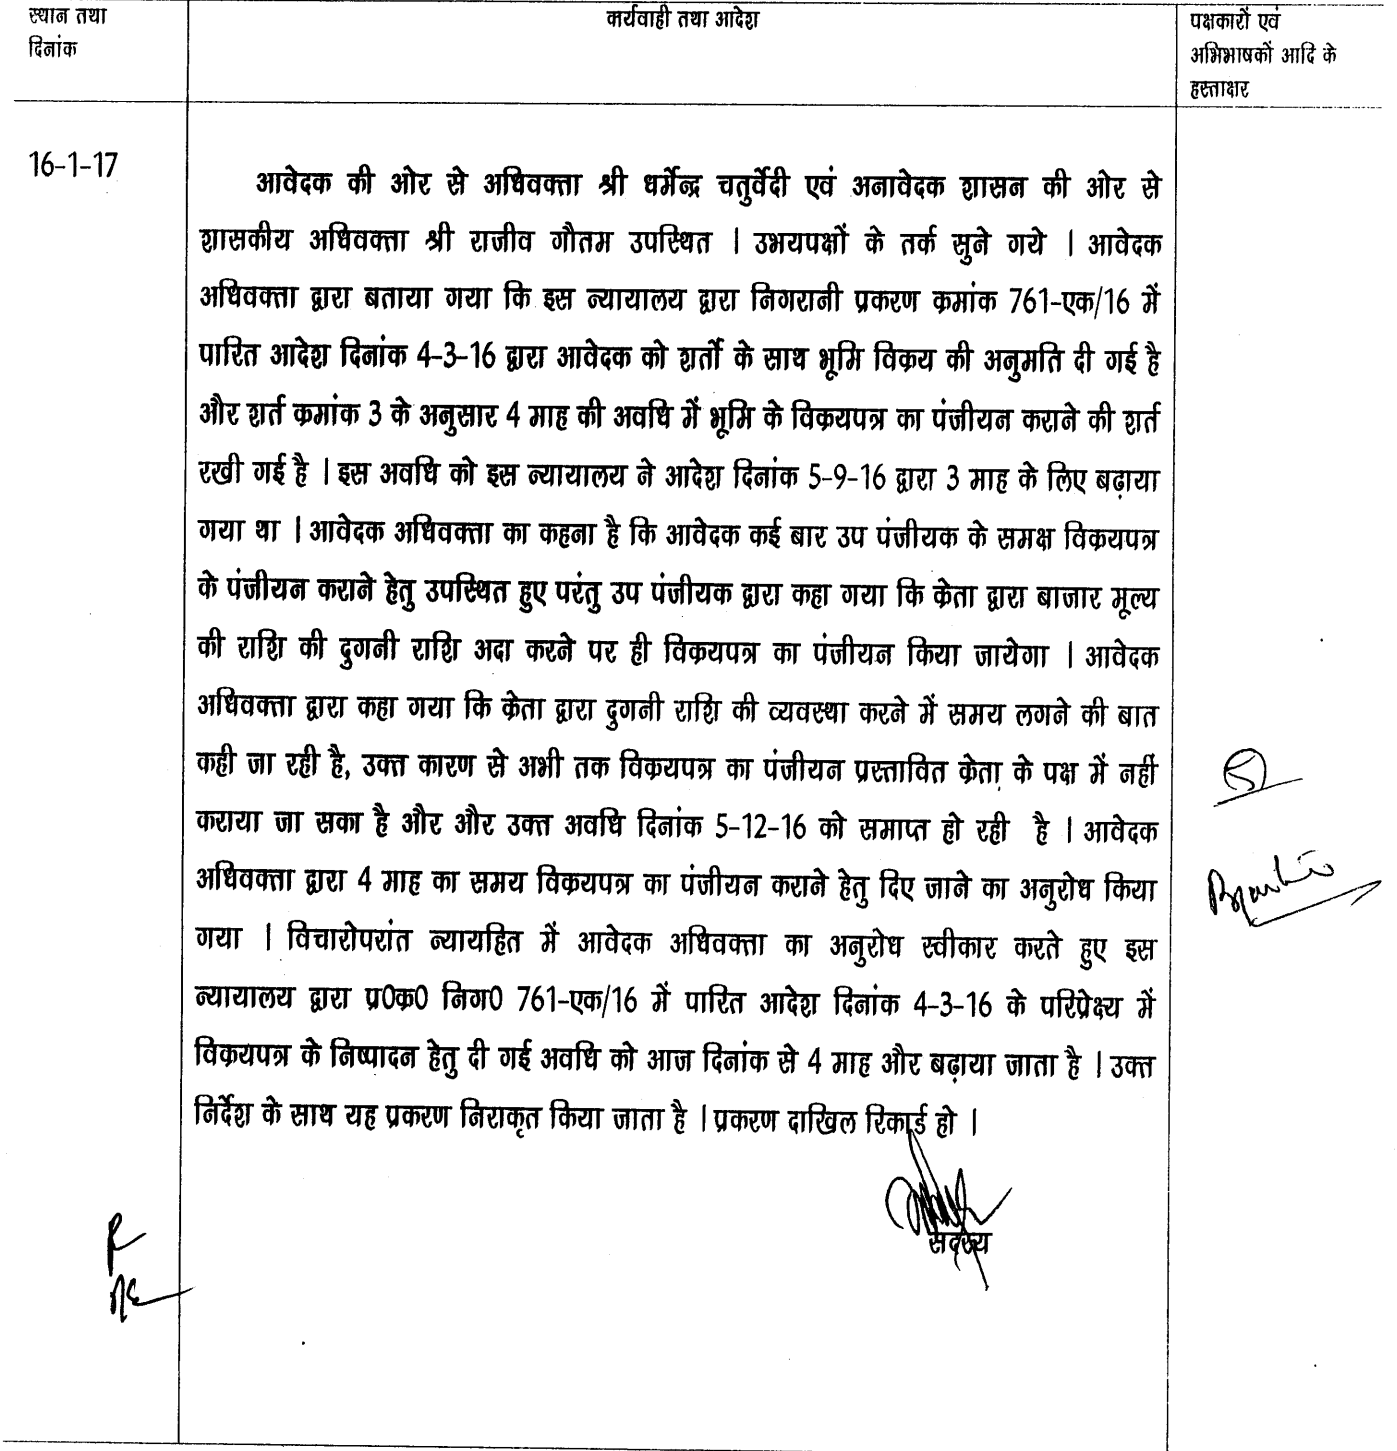 स्थान तथा
दिनांक
कार्यवाही तथा आदेश
पक्षकारों एवं
अभिभाषकों आदि के
हस्ताक्षर
16-1-17
आवेदक की ओर से अधिवक्ता श्री धर्मेन्द्र चतुर्वेदी एवं अनावेदक शासन की ओर से
शासकीय अधिवक्ता श्री राजीव गौतम उपस्थित । उभयपक्षों के तर्क सुने गये । आवेदक
अधिवक्ता द्वारा बताया गया कि इस न्यायालय द्वारा निगरानी प्रकरण क्रमांक 761-एक/16 में
पारित आदेश दिनांक 4-3-16 द्वारा आवेदक को शर्तो के साथ भूमि विक्रय की अनुमति दी गई है
और शर्त क्रमांक 3 के अनुसार 4 माह की अवधि में भूमि के विक्रयपत्र का पंजीयन कराने की शर्त
रखी गई है । इस अवधि को इस न्यायालय ने आदेश दिनांक 5-9-16 द्वारा 3 माह के लिए बढ़ाया
गया था । आवेदक अधिवक्ता का कहना है कि आवेदक कई बार उप पंजीयक के समक्ष विक्रयपत्र
के पंजीयन कराने हेतु उपस्थित हुए परंतु उप पंजीयक द्वारा कहा गया कि क्रेता द्वारा बाजार मूल्य
की राशि की दुगनी राशि अदा करने पर ही विक्रयपत्र का पंजीयन किया जायेगा । आवेदक
अधिवक्ता द्वारा कहा गया कि क्रेता द्वारा दुगनी राशि की व्यवस्था करने में समय लगने की बात
कही जा रही है, उक्त कारण से अभी तक विक्रयपत्र का पंजीयन प्रस्तावित क्रेता के पक्ष में नहीं
कराया जा सका है और और उक्त अवधि दिनांक 5-12-16 को समाप्त हो रही है । आवेदक
अधिवक्ता द्वारा 4 माह का समय विक्रयपत्र का पंजीयन कराने हेतु दिए जाने का अनुरोध किया
गया । विचारोपरांत न्यायहित में आवेदक अधिवक्ता का अनुरोध स्वीकार करते हुए इस
न्यायालय द्वारा प्र0क्र0 निग0 761-एक/16 में पारित आदेश दिनांक 4-3-16 के परिप्रेक्ष्य में
विक्रयपत्र के निष्पादन हेतु दी गई अवधि को आज दिनांक से 4 माह और बढ़ाया जाता है । उक्त
निर्देश के साथ यह प्रकरण निराकृत किया जाता है । प्रकरण दाखिल रिकार्ड हो ।
सदस्य